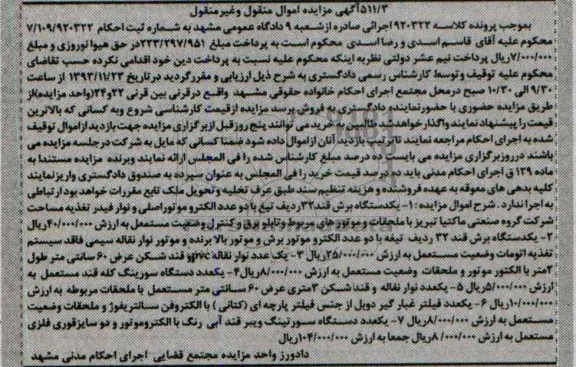 ۵۱۱/۳آگهی مزایده اموال منقول وغیرمنقول
بموجب پرونده کلاسه ۹۲۰۳۲۲اجرائی صادره ازشعبه ۹ دادگاه عمومی مشهد به شماره ثبت احکام ۷/۱۰۹/۹۲۰۳۲۲
محکوم علیه آقای قاسم اسدی و رضا اسدی محکوم است به پرداخت مبلغ ۲۲۳/۲۹۷/۹۵۱در حق هیوا نوروزی و مبلغ
۷/۰۰۰/۰۰۰ریال پرداخت نیم عشر دولتی نظربه اینکه محکوم علیه نسبت به پرداخت دین خود اقدامی نکرده حسب تقاضای
محکوم علیه توقیف وتوسط کارشناس رسمی دادگستری به شرح ذیل ارزیابی و مقررگردید در تاریخ ۱۳۹۳/۱۱/۲۳ از ساعت
۹/۳۰ الی ۱۰/۳۰ صبح درمحل مجتمع اجرای احکام خانواده حقوقی مشهد واقع درقرنی بین قرنی ۲۲و۲۴(واحد مزایده)از
طریق مزایده حضوری با حضورنماینده دادگستری به فروش برسد مزایده ازقیمت کارشناسی شروع وبه کسانی که بالاترین
قیمت را پیشنهاد نمایند واگذار خواهدشد طالبین خرید می توانند پنج روزقبل ازبرگزاری مزایده جهت بازدید ازاموال توقیف
شده به اجرای احکام مراجعه نمایند تاترتیب بازدید آنان ازاموال داده شود ضمنا کسانی که مایل به شرکت درجلسه مزایده می
باشند درروزبرگزاری مزایده می بایست ده درصد مبلغ کارشناس شده را فی المجلس ارائه نمایند وبرنده مزایده مستندا به
ماده ۱۲۹ ق اجرای احکام مدنی باید ده درصد قیمت خرید را فی المجلس به عنوان سپرده به صندوق دادگستری واریز نمایند
کلیه بدهی های معوقه به عهده فروشنده و هزینه تنظیم سند طبق عرف تخلیه و تحویل ملک تابع مقررات خواهد بود ارتباطی
به اجرا ندارد . شرح اموال مزایده : ۱- یکدستگاه برش قند ۳۲ردیف تیغ با دو عدد الکترو موتوراصلی و نوار فیدر تغذیه مساحت
شرکت گروه صنعتی ماکتیا تبریز با ملحقات و موتور های مربوط و تابلو برق و کنترل وضعیت مستعمل به ارزش ۴۰/۰۰۰/۰۰۰ریال
۲- یکدستگاه برش قند ۳۲ ردیف تیغه با دو عدد الکترو موتور برش و موتور بالا برنده و موتور نوار نقاله سیمی فاقد سیستم
تغذیه اتومات وضعیت مستعمل به ارزش ۲۵/۰۰۰/۰۰۰ریال ۳- یک عدد نوار نقاله pvcو قند شکن عرض ۶۰ سانتی متر طول
۲متر با الکتور موتور و ملحقات وضعیت مستعمل به ارزش ۸/۰۰۰/۰۰۰ریال۴- یکعدد دستگاه سورینگ کله قند مستعمل به
ارزش ۵/۰۰۰/۰۰۰ریال ۵- یکعدد نوار نقاله و قند شکن ۳متری عرض ۶۰ سانتی متر مستعمل با ملحقات مربوطه به ارزش
۱۰/۰۰۰/۰۰۰ریال ۶- یکعدد فیلتر غبار گیر دوبل از جنس فیلتر پارچه ای (کتانی ) با الکتروفن سانتریفوژ و ملحقات وضعیت
مستعمل به ارزش ۸/۰۰۰/۰۰۰ریال ۷- یکعدد دستگاه سورتینگ ویبر قند آبی رنگ با الکتروموتور و دو سایز قوری فلزی
مستعمل به ارزش ۸/۰۰۰/۰۰۰ریال جمعا به ارزش ۱۰۴/۰۰۰/۰۰۰ریال
دادورز واحد مزایده مجتمع قضایی اجرای احکام مدنی مشهد